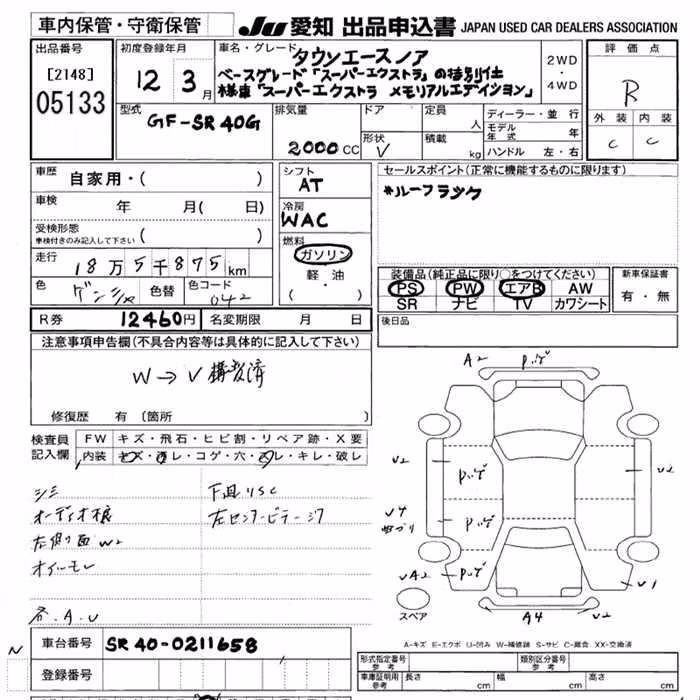 車内保管・守衛保管
JU 愛知 出品申込書 JAPAN USED CAR DEALERS ASSOCIATION
出品番号
[2148]
05133
初度登録年月
12年 3月
車名・グレード
タウンエースノア
ベースグレード「スーパーエクストラ」の特別仕
様車「スーパーエクストラ メモリアルエディション」
2WD
・
4WD
評価点
R
外装 内装
C C
型式
GF-SR40G
排気量
2000CC
ドア
形状
V
定員
人
積載
kg
ディーラー・並行
モデル年式 年
ハンドル 左・右
車歴
自家用・( )
車検
年 月( 日)
受検形態
車検付きのみ記入して下さい ( )
走行
18万5千875km
色
ゲンシャ
色替
色コード
042
シフト
AT
冷房
WAC
燃料
ガソリン
・
軽油
( ・ )
セールスポイント(正常に機能するものに限ります)
*ルーフラック
装備品(純正品に限り○をつけてください)
PS PW エアB AW
SR ナビ TV カワシート
新車保証書
有・無
後日品
R券 12460円 名変期限 月 日
注意事項申告欄(不具合内容等は具体的に記入して下さい)
W→V構変済
修復歴 有(箇所
検査員
記入欄
FW キズ・飛石・ヒビ割・リペア跡・X要
内装 キズ・汚レ・コゲ・穴・スレ・キレ・破レ
シミ
下回りSC
オーディオ
左センター
左側面W2
オイルモレ
各.A.U
A2
U2
U2
U4
UA2
U1
A4
U2
スペア
A-キズ E-エクボ U-凹み W-補修跡 S-サビ C-腐食 XX-交換済
N
車台番号 SR40-0211658
登録番号
形式指定番号
参考
類別区分番号
参考
車庫証明用
参考
長さ cm 幅 cm 高さ cm